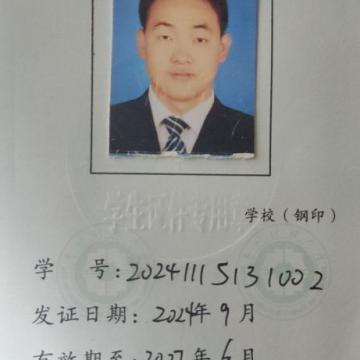 学生证件专用
学校（钢印）
学 号：20241115131002
发证日期：2024年9月
有效期至：2027年6月